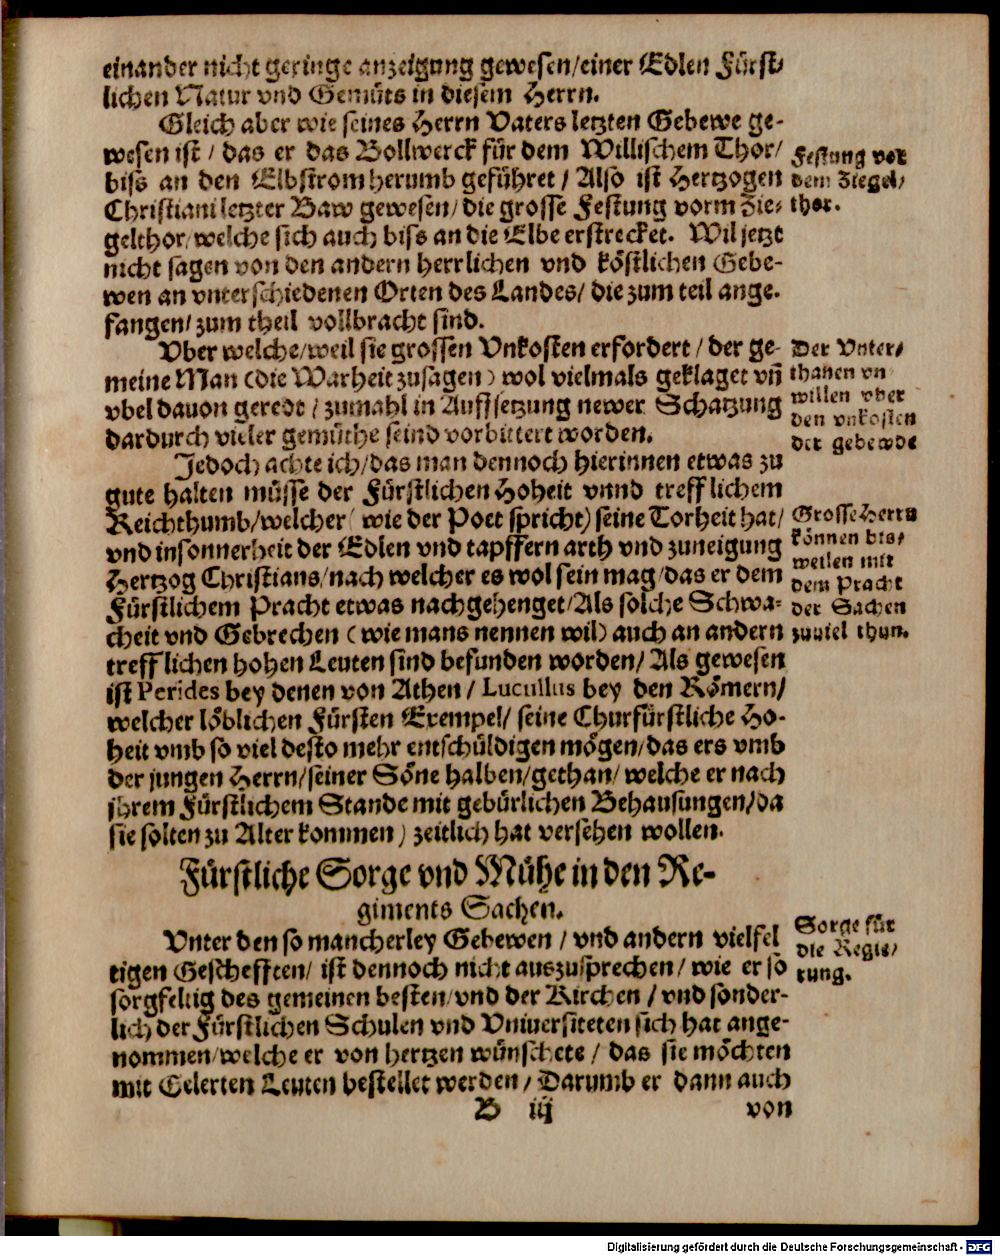 einander nicht geringe anzeigung gewesen/einer Edlen Fürst-
lichen Natur vnd Gemüts in diesem Herrn.
Gleich aber wie seines Herrn Vaters letzten Gebewe ge-
wesen ist / das er das Bollwerck für dem Willischem Thor/
biss an den Elbstrom herumb geführet / Also ist Hertzogen
Christiani letzter Baw gewesen/die grosse Festung vorm Zie-
gelthor/welche sich auch biss an die Elbe erstrecket. Wil jetzt
nicht sagen von den andern herrlichen vnd köstlichen Gebe-
wen an vnterschiedenen Orten des Landes/ die zum teil ange-
fangen/zum theil vollbracht sind.
Festung vor
dem Ziegel/
thor.
Vber welche/weil sie grossen Vnkosten erfordert / der ge-
meine Man (die Warheit zusagen) wol vielmals geklaget vñ
vbel dauon geredt / zumahl in Auffsetzung newer Schatzung
dardurch vieler gemüthe seind vorbittert worden.
Der Vnter/
thanen vn
willen vber
den vnkosten
der gebewde
Jedoch achte ich/das man dennoch hierinnen etwas zu
gute halten müsse der Fürstlichen Hoheit vnnd trefflichem
Reichthumb/welcher (wie der Poet spricht) seine Torheit hat/
vnd insonnerheit der Edlen vnd tapffern arth vnd zuneigung
Hertzog Christians/nach welcher es wol sein mag/das er dem
Fürstlichem Pracht etwas nachgehenget/Als solche Schwa-
cheit vnd Gebrechen (wie mans nennen wil) auch an andern
trefflichen hohen Leuten sind befunden worden/ Als gewesen
ist Perides bey denen von Athen / Lucullus bey den Römern/
welcher löblichen Fürsten Exempel/ seine Churfürstliche Ho-
heit vmb so viel desto mehr entschüldigen mögen/das ers vmb
der jungen Herrn/seiner Söne halben/gethan/ welche er nach
jhrem Fürstlichem Stande mit gebürlichen Behausungen/da
sie solten zu Alter kommen) zeitlich hat versehen wollen.
Grosse Herrn
können bis/
weilen mit
dem Pracht
der Sachen
zuuiel thun.
Fürstliche Sorge vnd Mühe in den Re-
giments Sachen.
Vnter den so mancherley Gebewen / vnd andern vielfel
tigen Geschefften/ ist dennoch nicht auszusprechen/ wie er so
sorgfeltig des gemeinen besten/vnd der Kirchen / vnd sonder-
lich der Fürstlichen Schulen vnd Vniuersiteten sich hat ange-
nommen/welche er von hertzen wünschete / das sie möchten
mit Gelerten Leuten bestellet werden / Darumb er dann auch
Sorge für
die Regie/
rung.
B iij
von
Digitalisierung gefördert durch die Deutsche Forschungsgemeinschaft - DFG